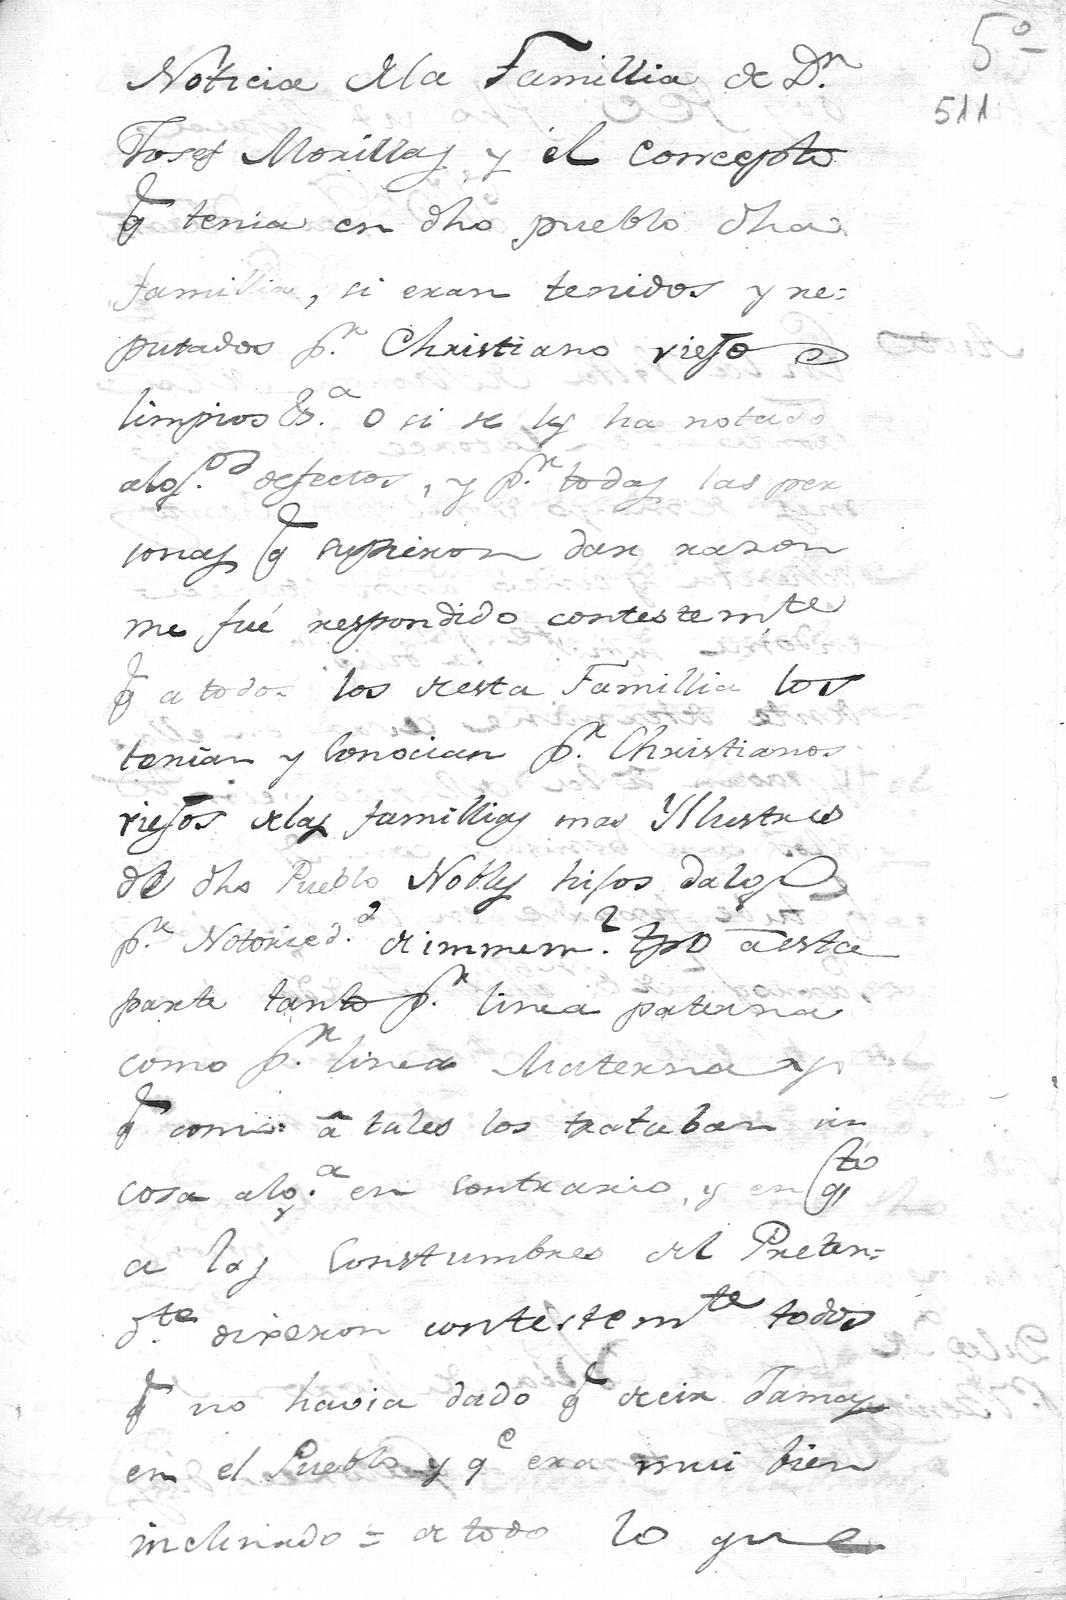 5º
511
Noticia de la Famillia de Dn.
Josef Morillas y el concepto
q tenia en dho pueblo dha
famillia, si eran tenidos y re=
putados pr. Christiano viejo
limpios &a. o si se les ha notado
algs. defectos, y pr. todas las per
sonas q supieron dar razon
me fué respondido contestemte
q a todos los desta Famillia los
tenian y Conocian pr. Christianos
viejos delas famillias mas Yllustres
de dho Pueblo Nobles hijos dalgo
pr. Notoried.d de immem.l tpo à esta
parte tanto pr. linea paterna
como pr. linea Materna y
q como à tales los trataban sin
cosa alga. en contrario, y en qto
a las Constumbres del Preten=
dte. dixeron contestemte todos
q no havia dado q decir Jamas
en el Pueblo y qe era mui bien
inclinado = de todo lo que